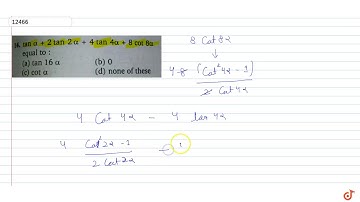 12466
14. tan α + 2 tan 2α + 4 tan 4α + 8 cot 8α
equal to :
(a) tan 16 α (b) 0
(c) cot α (d) none of these
8 Cot 8α
↓
4·8 (Cot²4α - 1)
2 Cot 4α
4 Cot 4α - 4 tan 4α
4 Cot²2α - 1
2 Cot 2α
- 1